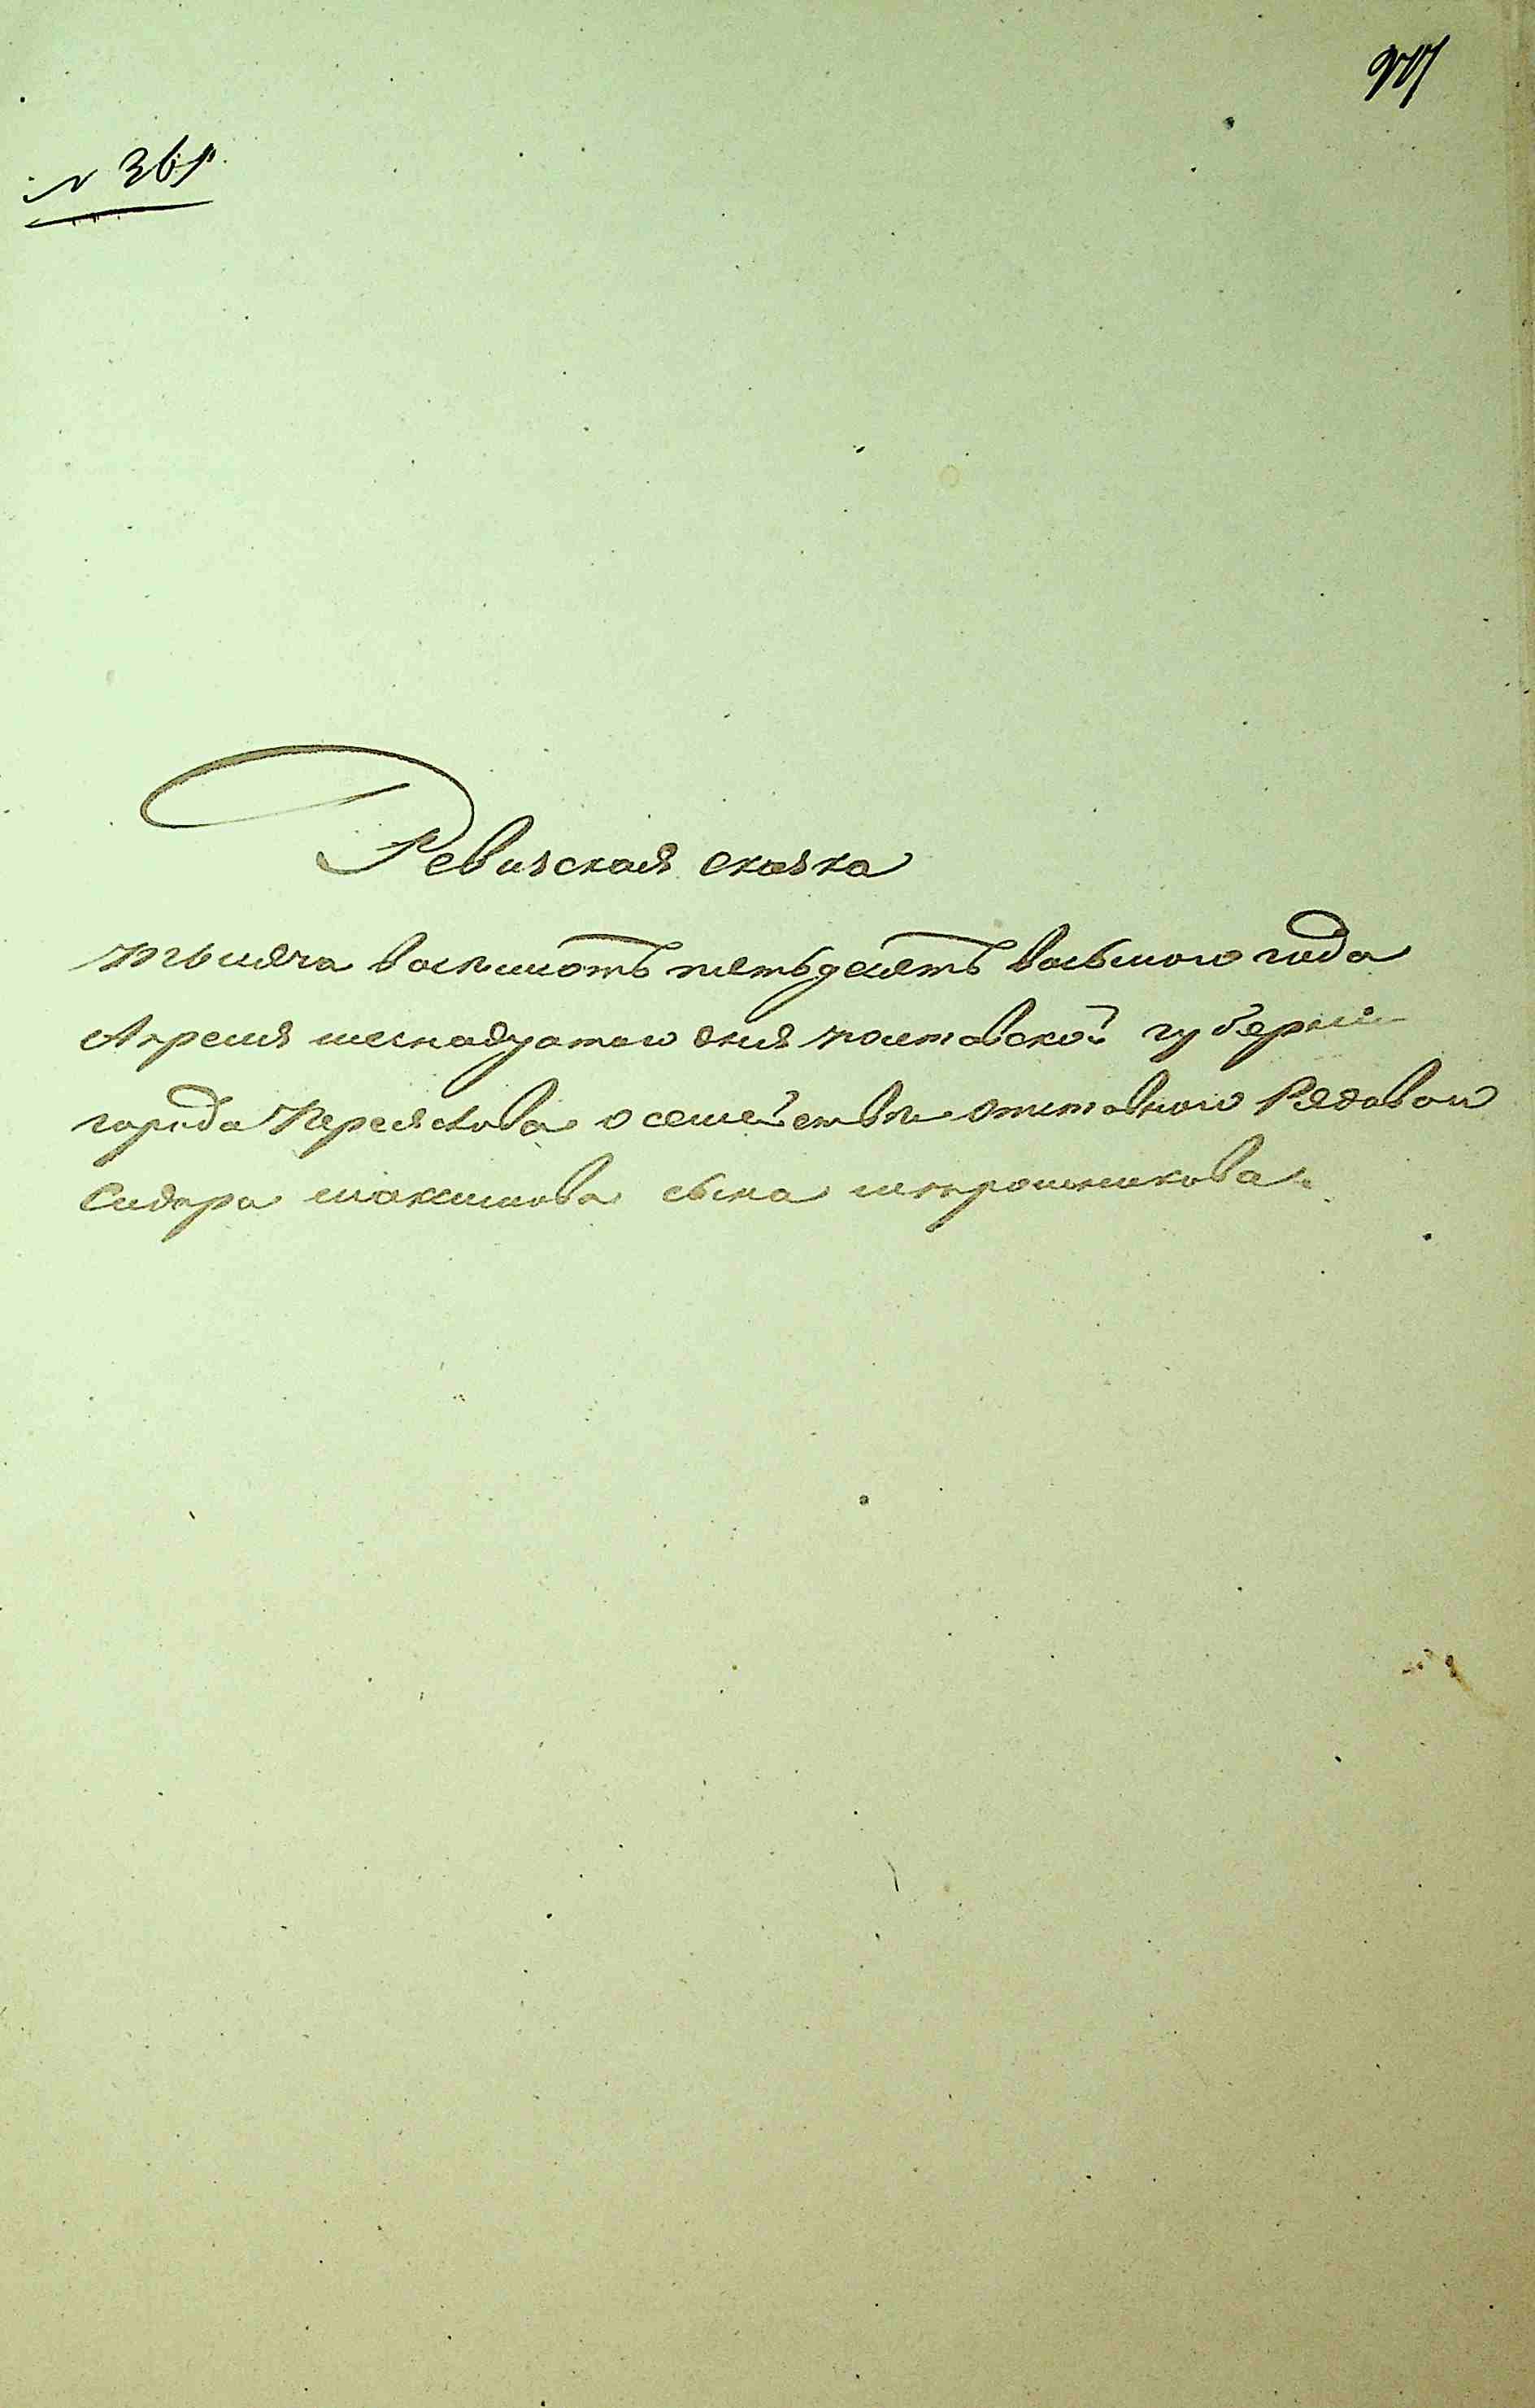 № 361.
Ревизская сказка
тысяча восемьсотъ пятьдесятъ восьмого года
Апреля шеснадцатого дня полтавской губернии
города Переяслова о семействе отставного Рядового
Сидора максимова сына